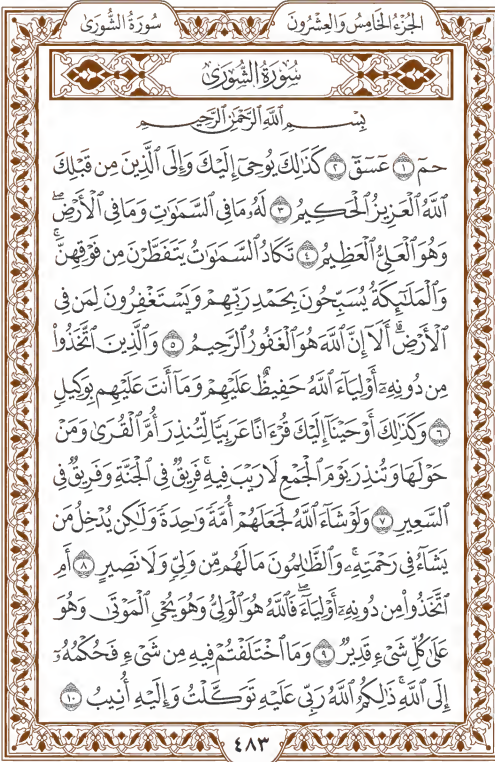 الجُزْءُ الخَامِسُ وَالعِشْرُونَ
سُورَةُ الشُّورَىٰ
سُورَةُ الشُّورَىٰ
بِسْمِ ٱللَّهِ ٱلرَّحْمَٰنِ ٱلرَّحِيمِ
حمٓ ١ عٓسٓقٓ ٢ كَذَٰلِكَ يُوحِيٓ إِلَيْكَ وَإِلَى ٱلَّذِينَ مِن قَبْلِكَ
ٱللَّهُ ٱلْعَزِيزُ ٱلْحَكِيمُ ٣ لَهُۥ مَا فِي ٱلسَّمَٰوَٰتِ وَمَا فِي ٱلْأَرْضِۖ
وَهُوَ ٱلْعَلِيُّ ٱلْعَظِيمُ ٤ تَكَادُ ٱلسَّمَٰوَٰتُ يَتَفَطَّرْنَ مِن فَوْقِهِنَّۚ
وَٱلْمَلَٰٓئِكَةُ يُسَبِّحُونَ بِحَمْدِ رَبِّهِمْ وَيَسْتَغْفِرُونَ لِمَن فِي
ٱلْأَرْضِۗ أَلَآ إِنَّ ٱللَّهَ هُوَ ٱلْغَفُورُ ٱلرَّحِيمُ ٥ وَٱلَّذِينَ ٱتَّخَذُوا۟
مِن دُونِهِۦٓ أَوْلِيَآءَ ٱللَّهُ حَفِيظٌ عَلَيْهِمْ وَمَآ أَنتَ عَلَيْهِم بِوَكِيلٍ
٦ وَكَذَٰلِكَ أَوْحَيْنَآ إِلَيْكَ قُرْءَانًا عَرَبِيًّا لِّتُنذِرَ أُمَّ ٱلْقُرَىٰ وَمَنْ
حَوْلَهَا وَتُنذِرَ يَوْمَ ٱلْجَمْعِ لَا رَيْبَ فِيهِۚ فَرِيقٌ فِي ٱلْجَنَّةِ وَفَرِيقٌ فِي
ٱلسَّعِيرِ ٧ وَلَوْ شَآءَ ٱللَّهُ لَجَعَلَهُمْ أُمَّةً وَٰحِدَةً وَلَٰكِن يُدْخِلُ مَن
يَشَآءُ فِي رَحْمَتِهِۦۚ وَٱلظَّٰلِمُونَ مَا لَهُم مِّن وَلِيٍّ وَلَا نَصِيرٍ ٨ أَمِ
ٱتَّخَذُوا۟ مِن دُونِهِۦٓ أَوْلِيَآءَۖ فَٱللَّهُ هُوَ ٱلْوَلِيُّ وَهُوَ يُحْيِ ٱلْمَوْتَىٰ وَهُوَ
عَلَىٰ كُلِّ شَيْءٍ قَدِيرٌ ٩ وَمَا ٱخْتَلَفْتُمْ فِيهِ مِن شَيْءٍ فَحُكْمُهُۥٓ
إِلَى ٱللَّهِۚ ذَٰلِكُمُ ٱللَّهُ رَبِّي عَلَيْهِ تَوَكَّلْتُ وَإِلَيْهِ أُنِيبُ ١٠
٤٨٣